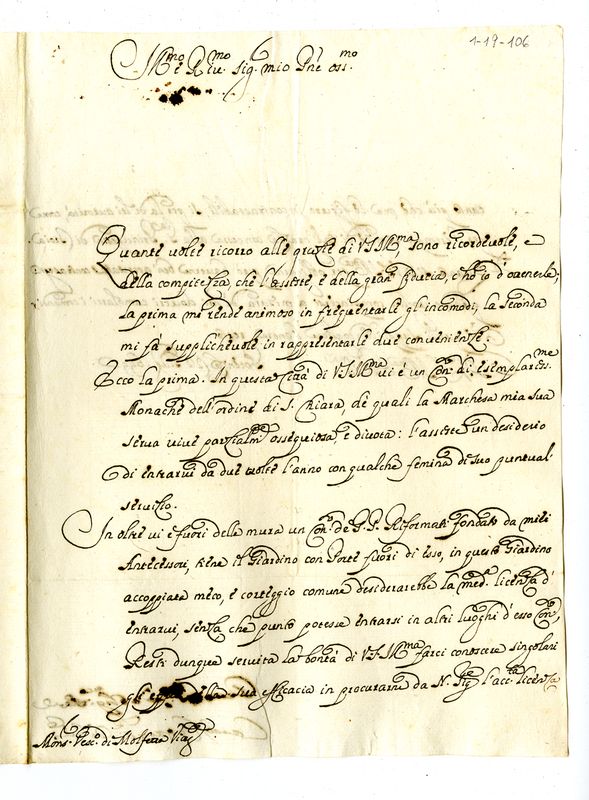 1-19-106
Ill.mo e Rev.mo Sig.r mio P.ne oss.mo
Quante volte ricorro alle grazie di V.S.Ill.ma, sono ricordevole, e
della compitezza, che l'assiste, e della gran fiducia, c'hò io d'ottenerle,
la prima mi rende animoso in frequentarle gl'incomodi, la seconda
mi fà supplichevole in rappresentarle due convenienze.
Ecco la prima. In questa Città di V.S.Ill.ma vi è un Con.to di esemplariss.me
Monache dell'ordine di S. Chiara, de quali la Marchesa mia sua
serva vive parzialm.te ossequiosa, e divota: l'assiste un desiderio
di entrarvi da due volte l'anno con qualche femina di suo puntual
servizio.
In oltre vi è fuori delle mura un Con.to de P.P. Riformati fondato da miei
Antecessori, tiene il Giardino con Porte fuori di esso, in questo Giardino
accoppiata meco, e corteggio comune desiderarebbe la med.a licenza d'
entrarvi, senza che punto potesse entrarsi in altri luoghi d'esso Con.to,
Resti dunque servita la bontà di V.S.Ill.ma farci conoscere singolari
gli effetti della sua efficacia in procurarne da N. Sig.re l'acc.ta licenza
Mons. Vesc.o di Molfetta